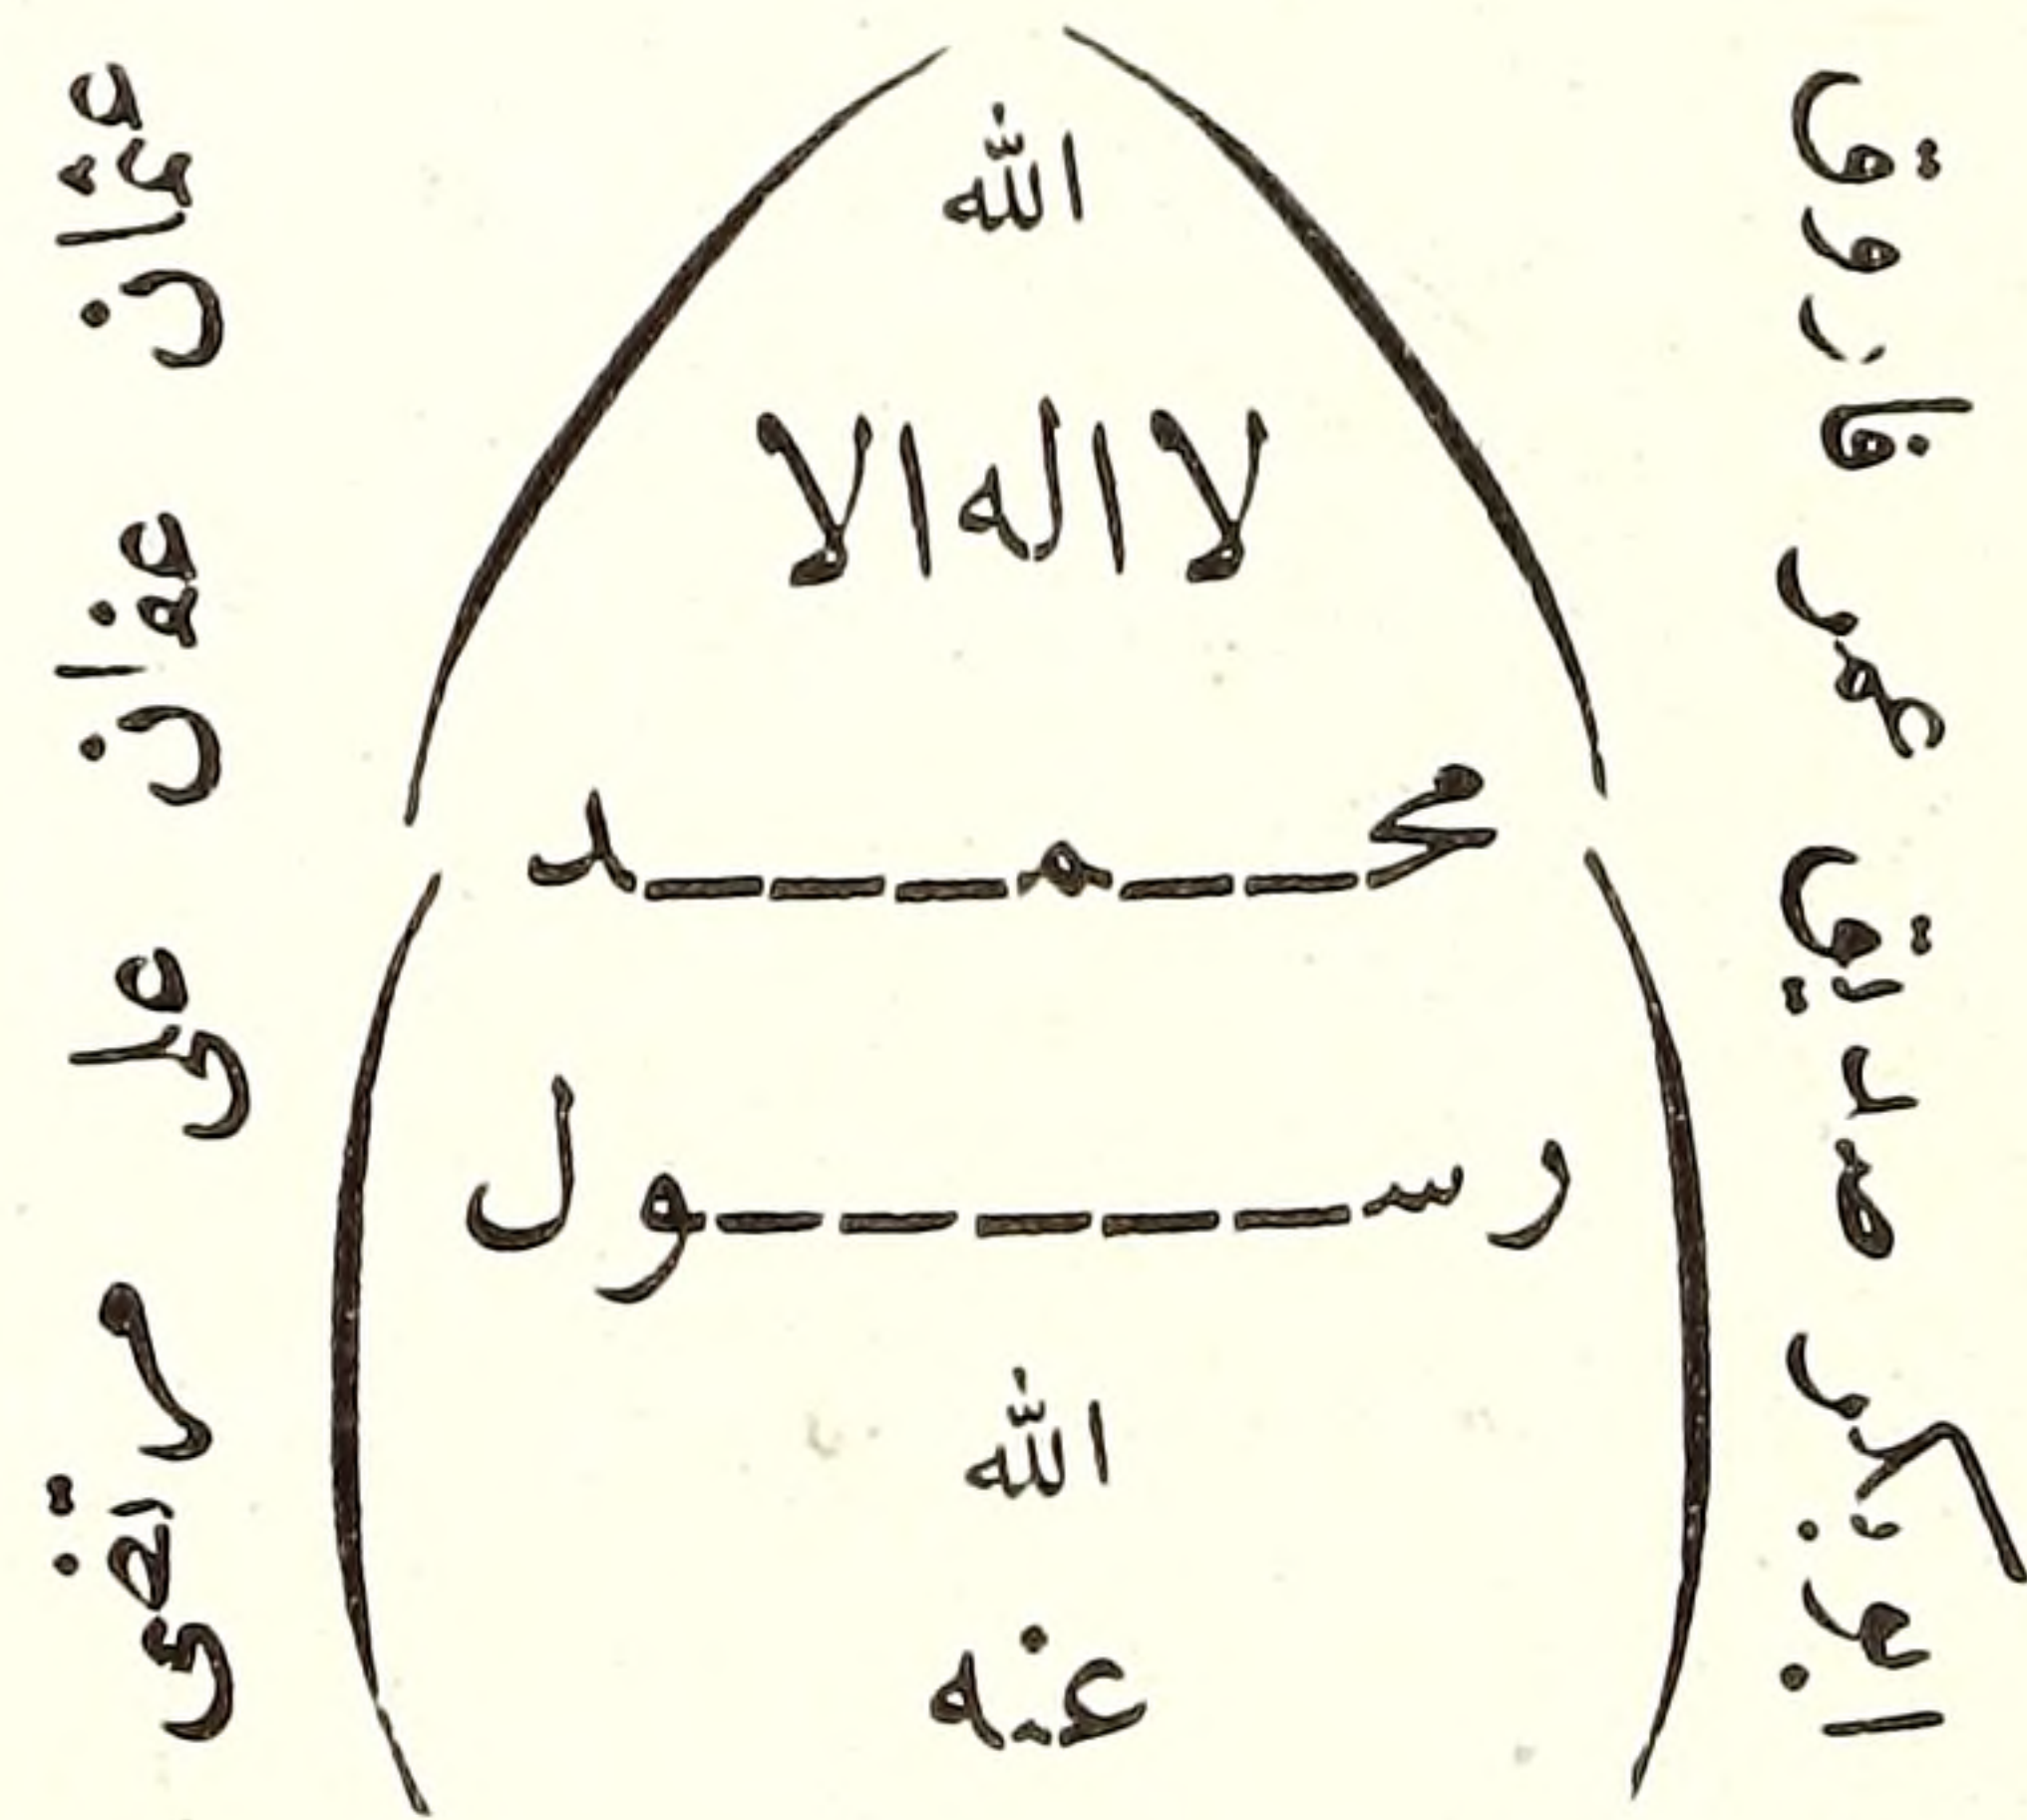 ابوبكر صديق عمر فاروق
الله
لا اله الا
محـــمـــد
رســـول
الله
عنه
عثمان عفان على مرتضى